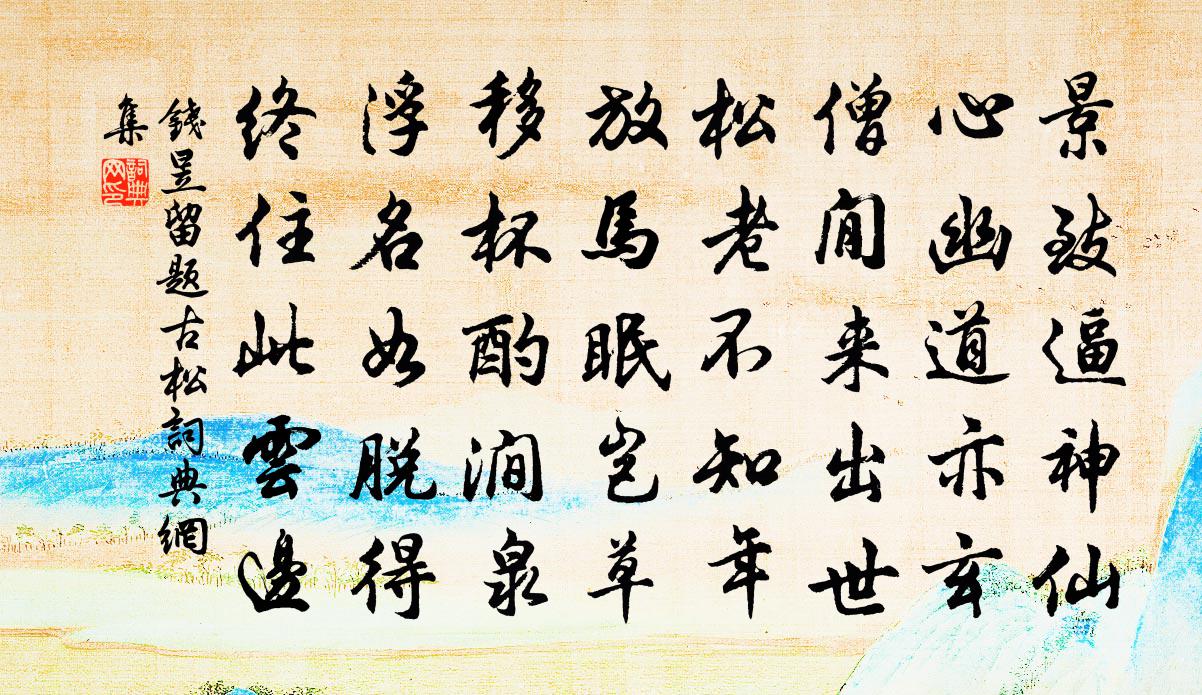 景致逼神仙
心幽道亦玄
僧閒来出世
松老不知年
放馬眠岩草
移杯酌澗泉
浮名如脫得
終住此雲邊
錢昱留题古松詞典網
集
詞典網印